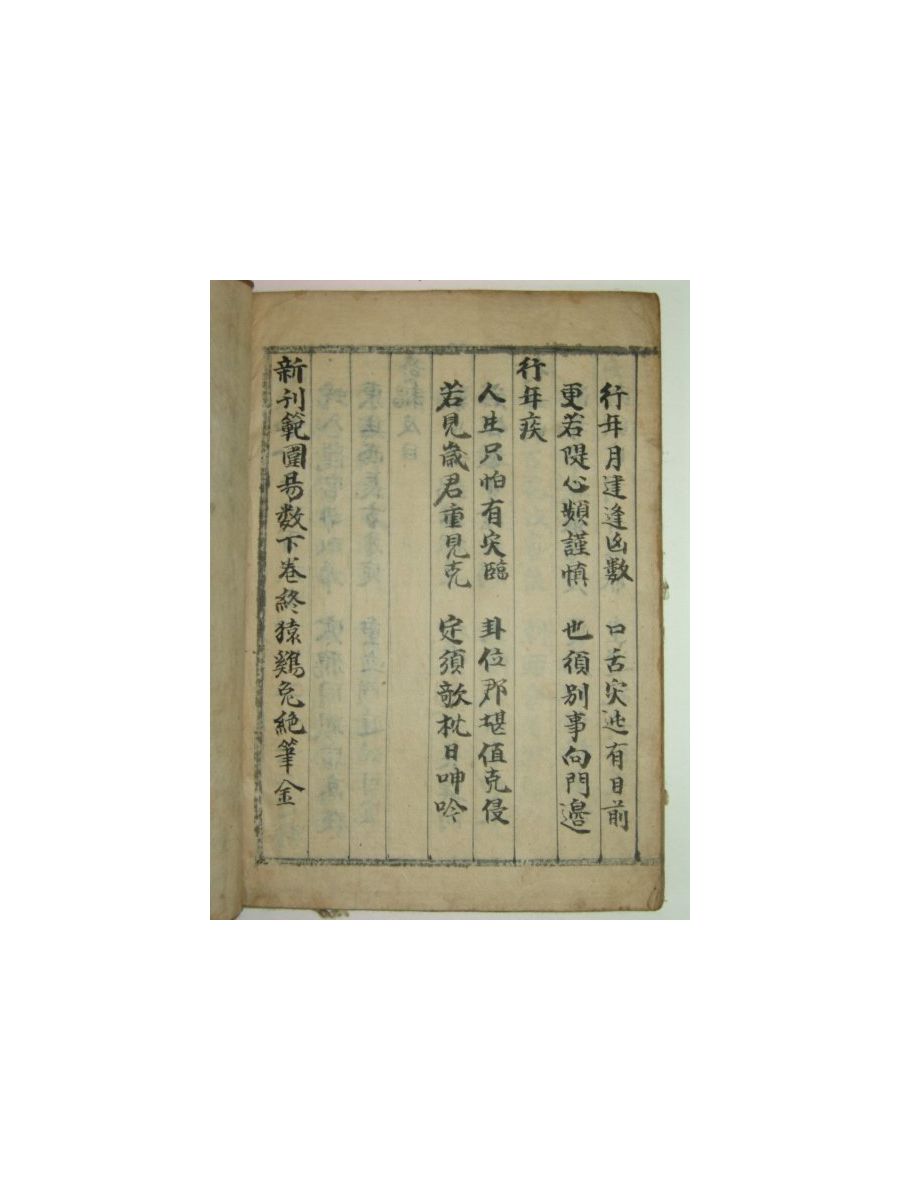 行年月建逢凶數 口舌灾迍有日前
更若隄心頻謹慎 也須別事向門邊
行年疾
人生只怕有灾臨 卦位那堪值克侵
若見歲君重見克 定須欹枕日呻吟
新刊範圍昜数下卷終猿鷄兔絶筆金